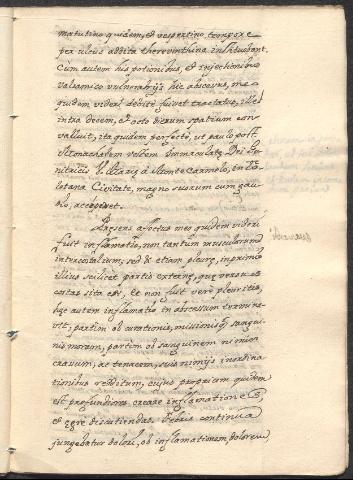 matutino quidem, et vespertino tempore
per ulcus addita therevinthina instituerunt.
Cum autem his potionibus, et injectionibus
valsamico vulnerarijs hic abscessus, me
quidem videri debite fuisset tractatus, ille
intra decem, et octo dierum spatium con
valluit, ita quidem perfecte, ut paulo post
Monachalem vestem Immaculatæ Dei Ge
nitricis V. Mariæ a Monte Carmelo, in
letana Civitate, magno suorum cum gau
dio, accepisset.
Præsens affectus meo quidem videri
fuit inflamatio, non tantum musculorum
intercostalium, sed & etiam pleuræ, in primis
illius scilicet partis externæ, quæ versus
costas sita est, & non fuit vera pleuritis,
hæc autem inflamatio in abscessum termina
vit, partim ob curationis, missionisque sangui
nis moram, partim ob sanguinem nimium
crassum, ac tenacem, suis nimijs inordina
tionibus redditum, cujus proprium quidem
est profundiores creare inflamationes
et ægre discutiendas. Febris continua
jungebatur dolori, ob inflamationem, dolorem,